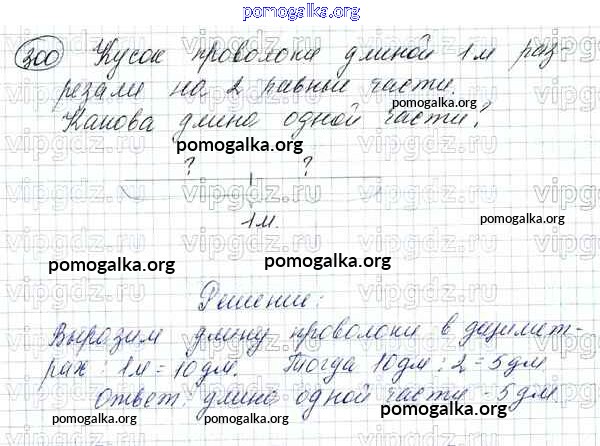 pomogalka.org
300 Кусок проволоки длиной 1 м раз-
резали на 2 равные части.
pomogalka.org
Какова длина одной части?
pomogalka.org
pomogalka.org
? ?
vipgdz.ru vipgdz.ru vipgdz.ru
1 м.
pomogalka.org
pomogalka.org
pomogalka.org
Решение:
Выразим длину проволоки в децимет-
рах: 1 м = 10 дм. Тогда 10 дм : 2 = 5 дм
Ответ: длина одной части - 5 дм
pomogalka.org
pomogalka.org
pomogalka.org